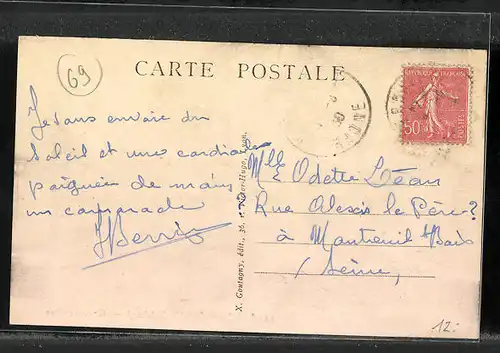 69
CARTE POSTALE
REPUBLIQUE FRANÇAISE
50
POSTES
RHONE
Je vous envoie du
Soleil et une cordiale
poignée de main
un camarade
X. Goutagny, édit., 36, r. Victor-Hugo, Lyon.
Mlle Odette Léau
Rue Alexis le Père ?
à Montreuil s/ Bois
Seine,
12.-